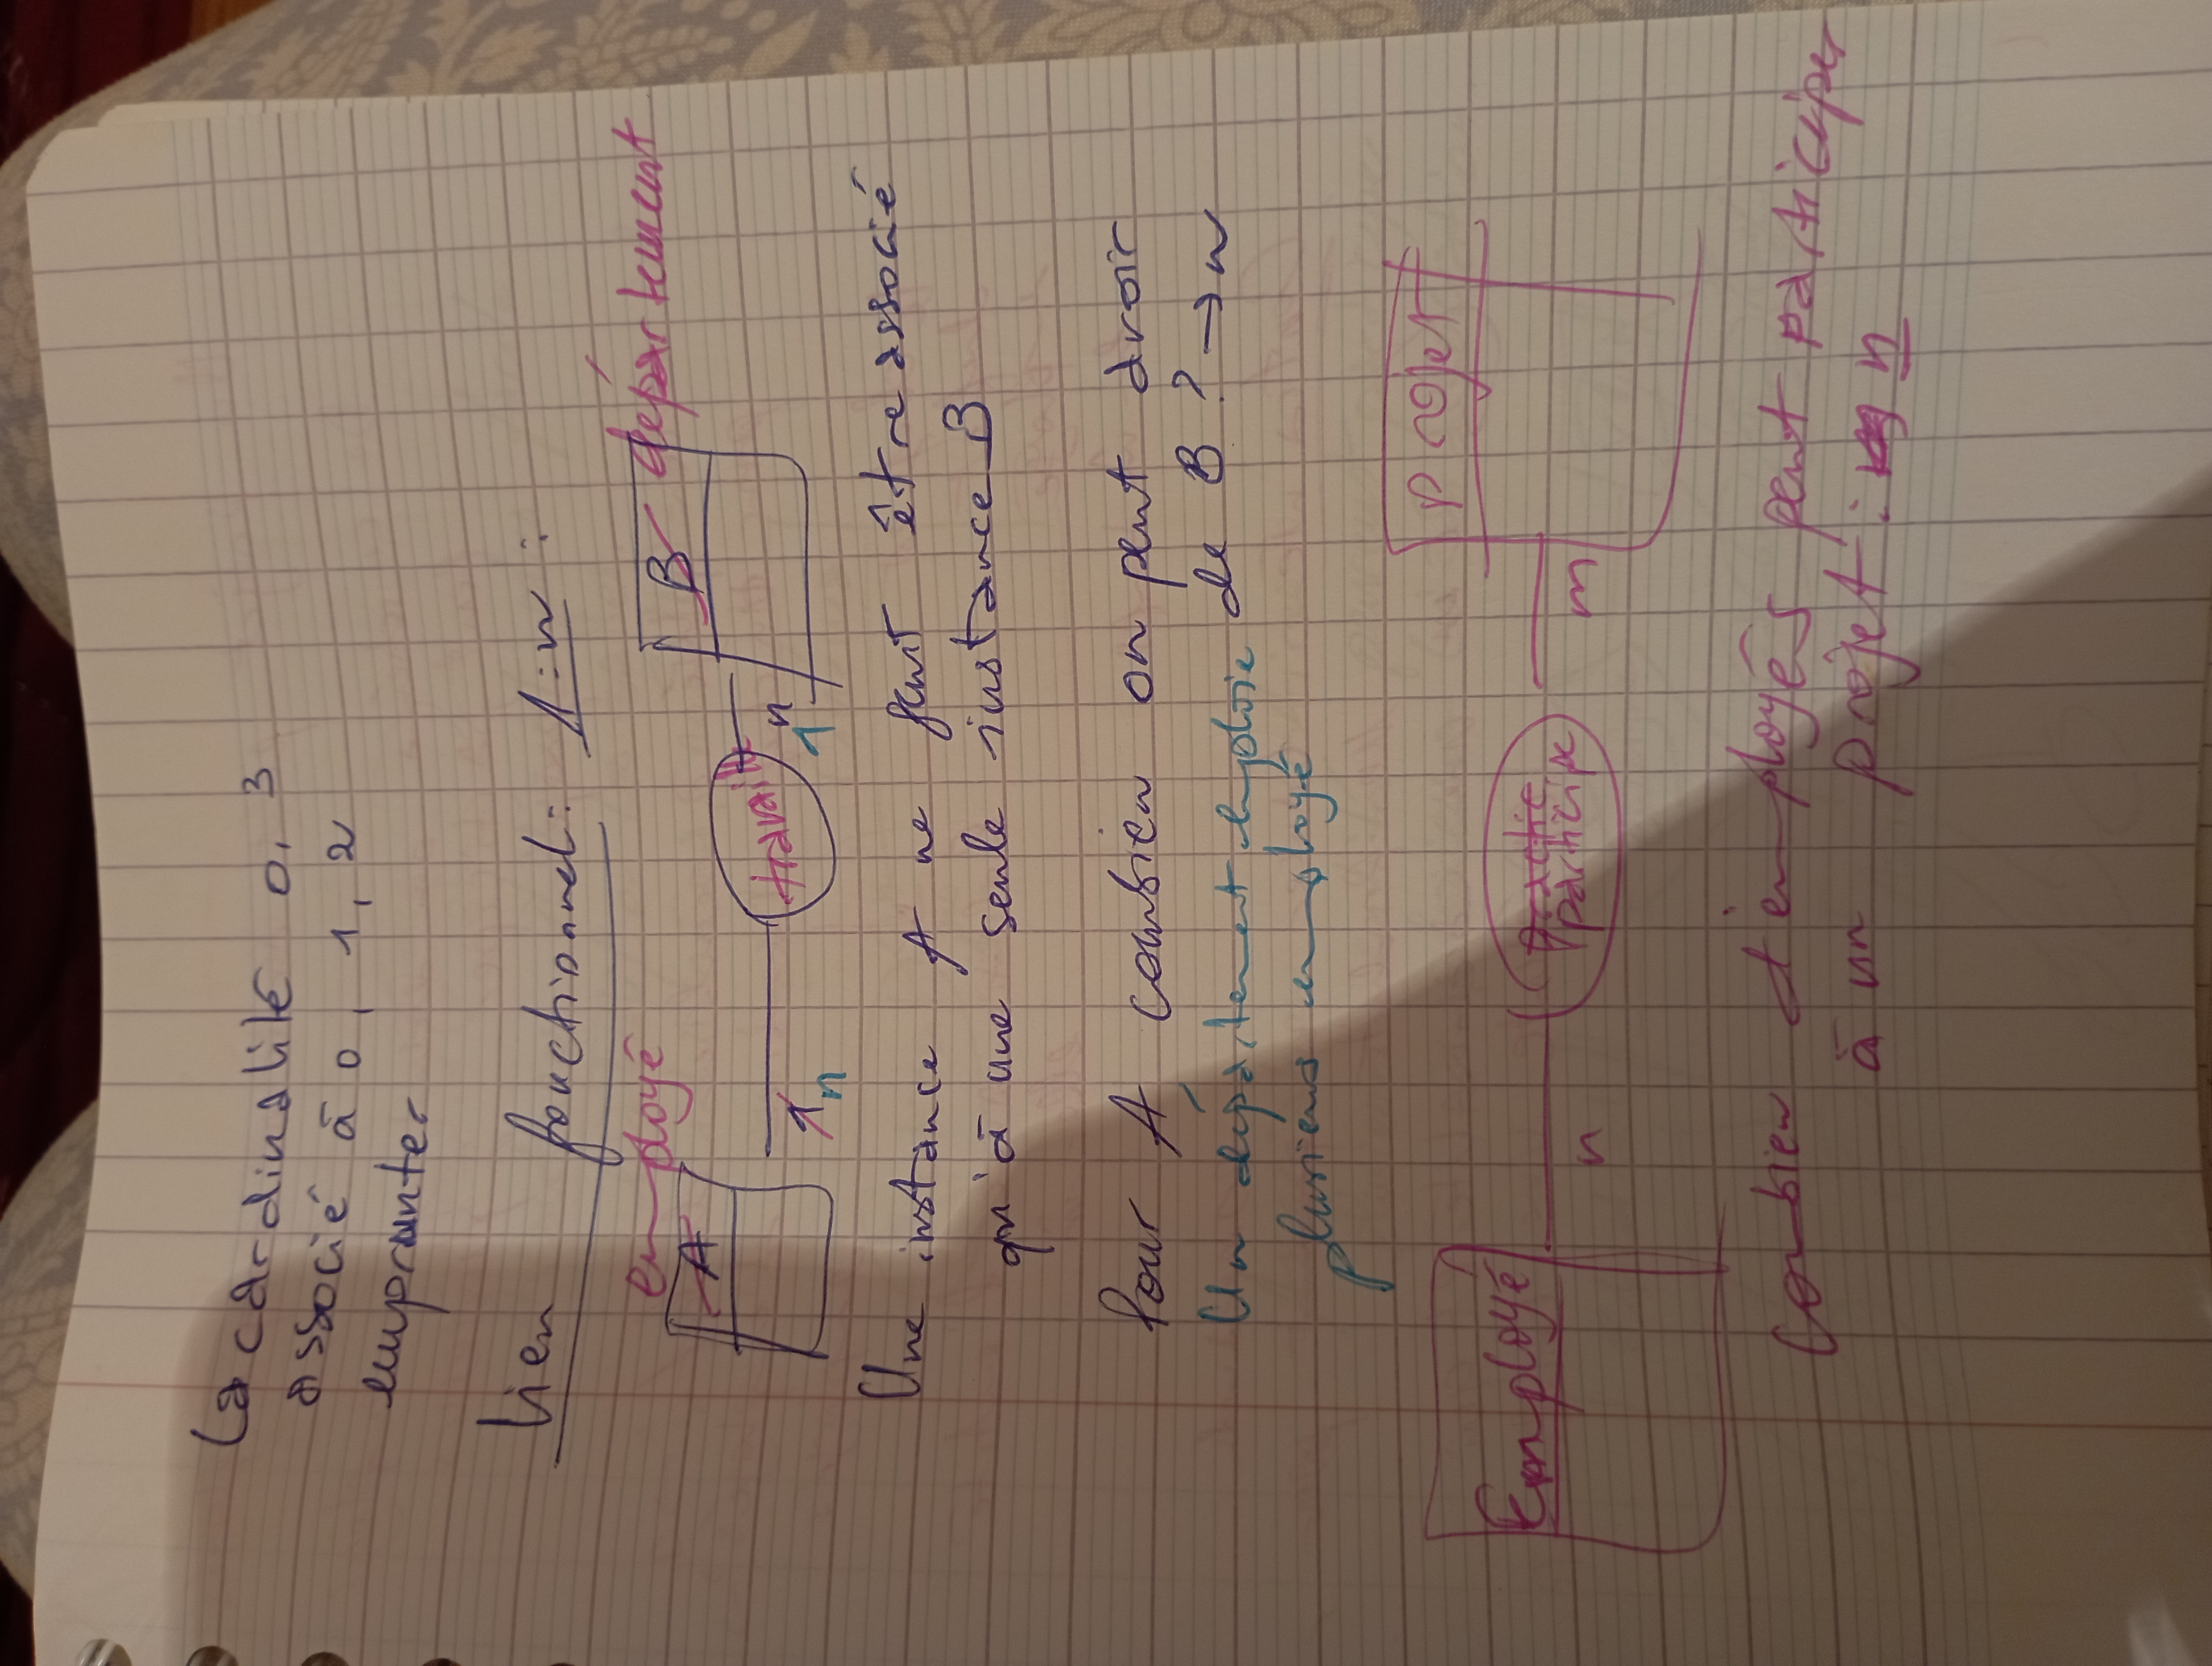 La cardinalité 0, 3
associé à 0, 1, 2
emprunter
Lien fonctionnel : 1:n :
employé
A
1 n
travaille
1 n
B département
Une instance A ne peut être associé
qu'à une seule instance B
Pour A combien on peut avoir
de B ? → n
Un département emploie
plusieurs employé
Employé
n
participe
m
Projet
Combien d'employés peut participer
à un projet : n